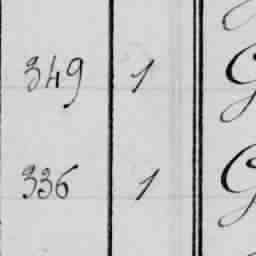 349 1 G
336 1 G